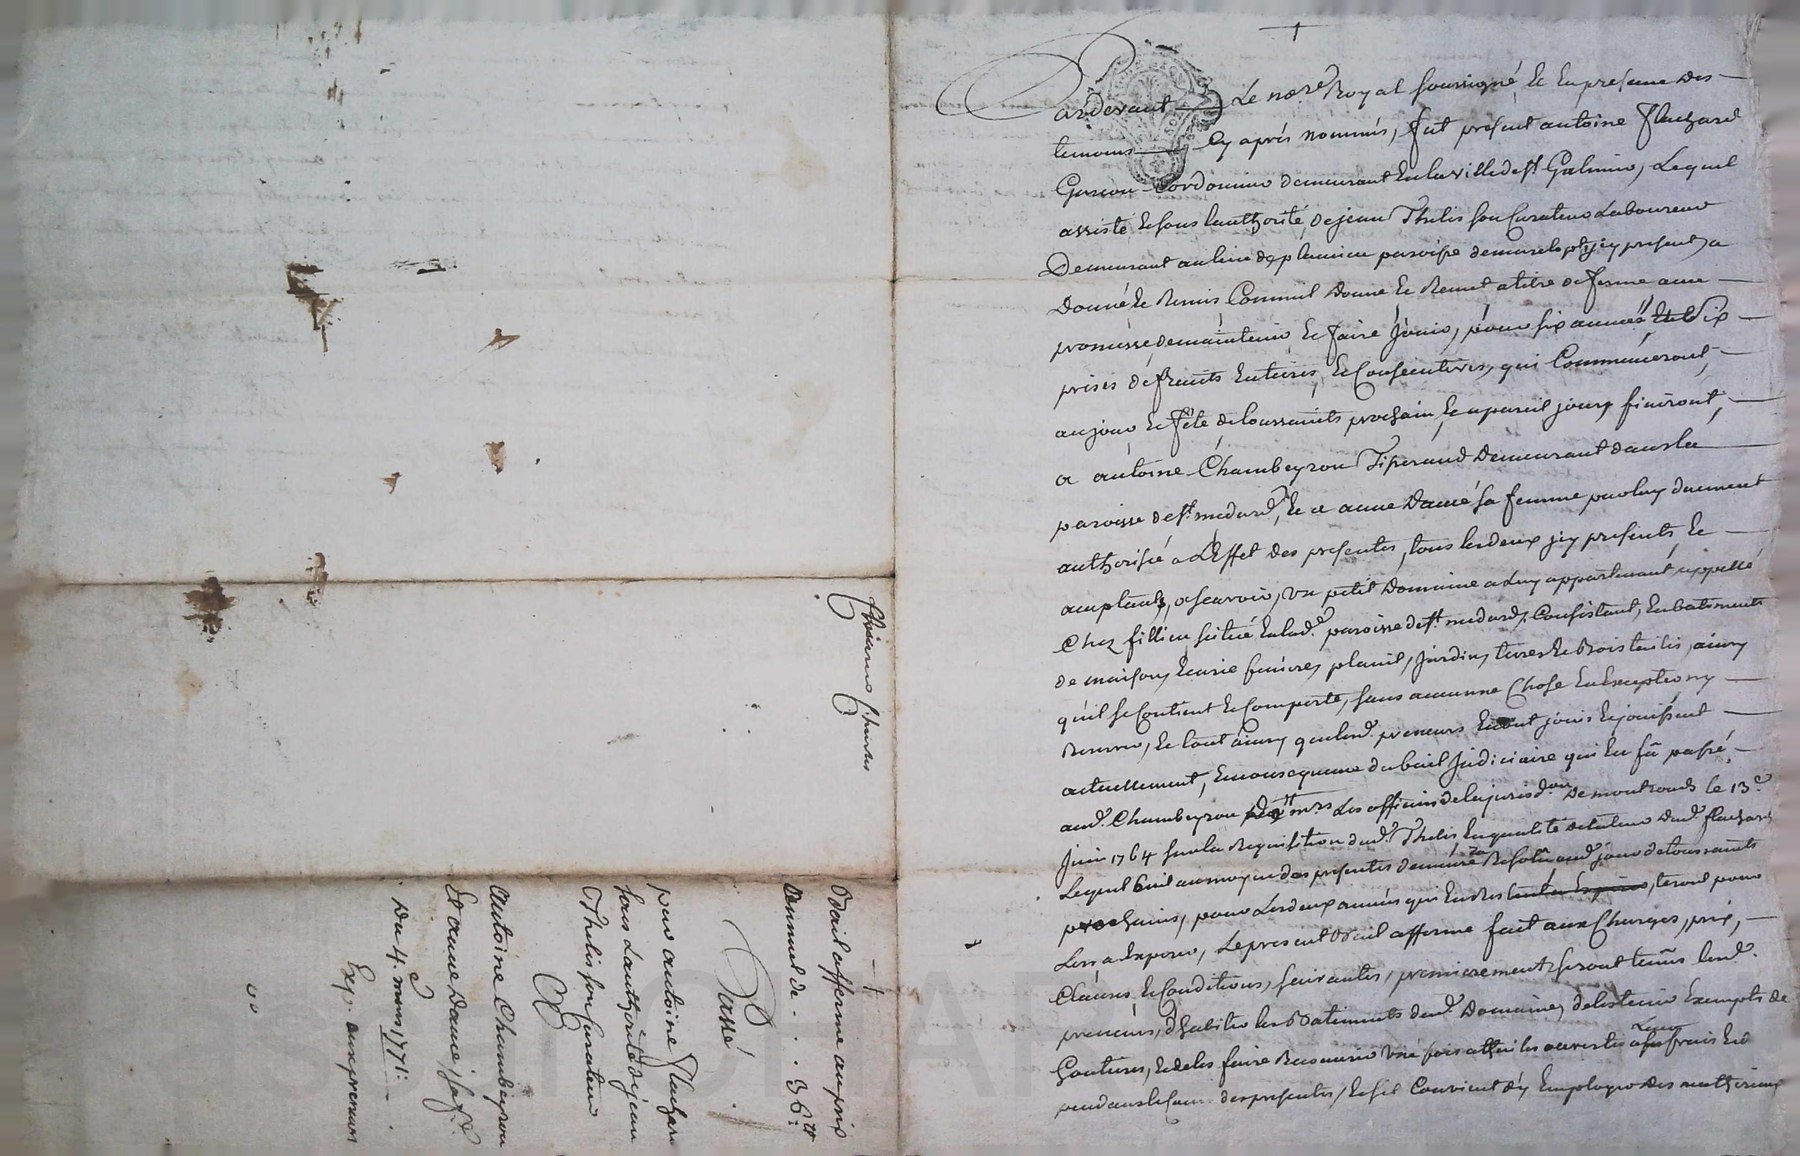 Pardevant Le no.re Royal soussigné Et En presence des
temoins Cy aprés nommés, fut present antoine flachard
Garcon Cordonnier demeurant En la ville de st Galmier, Lequel
assisté Et sous l'authorité de jean Thelis son Curateur Laboureur
Demeurant au lieu de paroisse de present, a
Donné Et Remis Comme il Donne Et Remet a titre de ferme avec
promesse de maintenir Et faire Jouir, pour six années Et six
prises de fruits Entieres, Et Consecutives, qui Commenceront,
au jour Et fête de toussaints prochain, Et a pareil jour finiront,
a antoine Chambeyron Tisserand Demeurant dans la
paroisse de st. medard, Et a anne Damé sa femme de luy duement
authorisée a L'Effet des presentes, tous les deux jcy presents Et
acceptants, a scavoir, un petit Domaine a luy appartenant appellé
Chez fillieu situé En lad.e paroisse de st. medard, Consistant, En batiments
de maison, Ecurie feniere, jardin, terres Et Bois taillis, ainsy
qu'il se Contient Et Comporte, sans aucunne Chose En Exception ny
Reserve, Et tout ainsy que lesd. preneurs En ont joui Et jouissent
actuellement, En consequence du bail Judiciaire qui En fû passé
aud. Chambeyron mrs Les officiers de la jurisd.on De montrond le 13.e
Juin 1764 sur la Requisition dud. Thelis En qualité de tuteur dud. flachard
Lequel bail au moyen des presentes demeure Resolu aud. jour de toussaints
prochains, pour Les deux années qui En Restent a Expirer,
Le present Bail afferme fait aux Charges, prix,
Clauses Et Conditions, suivantes, premierement seront tenus lesd.
preneurs, d'habiter les Batiments dud. Domaine, de les tenir Exempts de
Goutieres, Et de les faire Recouvrir une fois a leurs frais
pendant le cours des presentes, Et s'il Convient d'y Employer Des mathériaux
Bail afferme au prix
annuel de - . . 36.tt
Passé
par antoine flachard
sous L'authorité de jean
Thelis son Curateur
A
antoine Chambeyron
Et anne Damé, sa f.e
Du 4. mars 1771.
Exp. aux preneurs